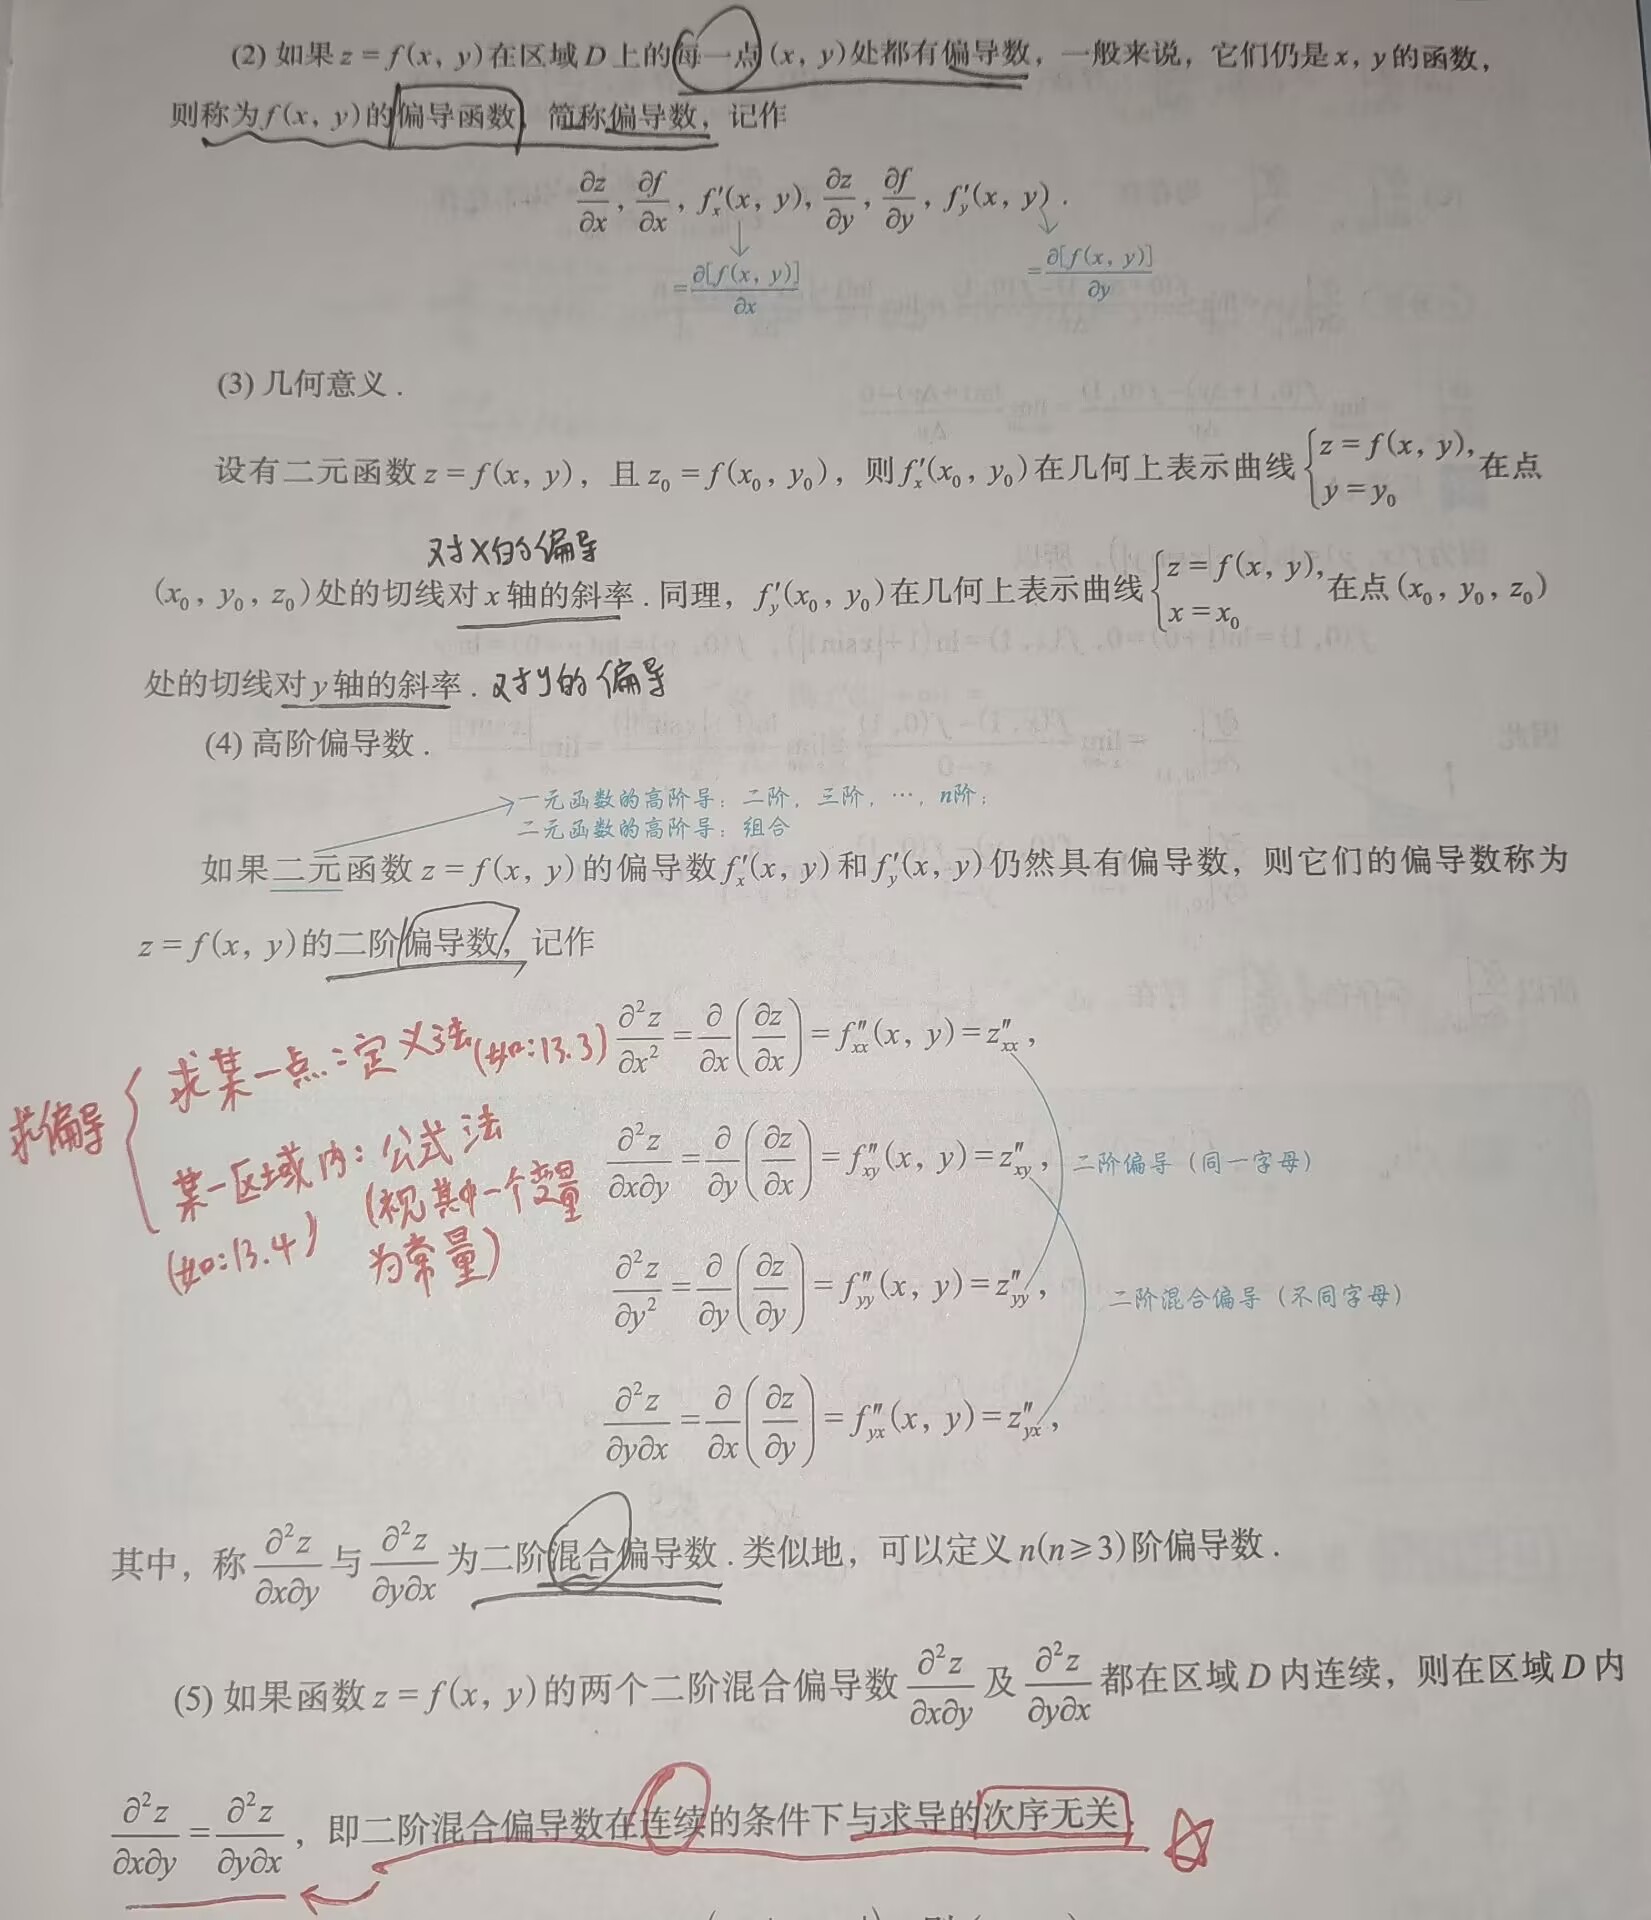 (2) 如果 z = f(x, y) 在区域 D 上的每一点 (x, y) 处都有偏导数，一般来说，它们仍是 x, y 的函数，
则称为 f(x, y) 的偏导函数，简称偏导数，记作
∂z/∂x, ∂f/∂x, f′ₓ(x, y), ∂z/∂y, ∂f/∂y, f′_y(x, y) .
= ∂[f(x, y)]/∂x
= ∂[f(x, y)]/∂y
(3) 几何意义 .
设有二元函数 z = f(x, y)，且 z₀ = f(x₀, y₀)，则 f′ₓ(x₀, y₀) 在几何上表示曲线 { z = f(x, y), y = y₀ 在点
对x的偏导
(x₀, y₀, z₀) 处的切线对 x 轴的斜率 . 同理，f′_y(x₀, y₀) 在几何上表示曲线 { z = f(x, y), x = x₀ 在点 (x₀, y₀, z₀)
处的切线对 y 轴的斜率 . 对y的偏导
(4) 高阶偏导数 .
一元函数的高阶导：二阶，三阶，…，n阶；
二元函数的高阶导：组合
如果二元函数 z = f(x, y) 的偏导数 f′ₓ(x, y) 和 f′_y(x, y) 仍然具有偏导数，则它们的偏导数称为
z = f(x, y) 的二阶偏导数，记作
∂²z/∂x² = ∂/∂x(∂z/∂x) = f″_xx(x, y) = z″_xx ,
求偏导 { 求某一点：定义法 (如：13.3)
∂²z/∂x∂y = ∂/∂y(∂z/∂x) = f″_xy(x, y) = z″_xy , 二阶偏导（同一字母）
某一区域内：公式法
(视其中一个变量
(如：13.4) 为常量)
∂²z/∂y² = ∂/∂y(∂z/∂y) = f″_yy(x, y) = z″_yy , 二阶混合偏导（不同字母）
∂²z/∂y∂x = ∂/∂x(∂z/∂y) = f″_yx(x, y) = z″_yx ,
其中，称 ∂²z/∂x∂y 与 ∂²z/∂y∂x 为二阶混合偏导数 . 类似地，可以定义 n(n≥3) 阶偏导数 .
(5) 如果函数 z = f(x, y) 的两个二阶混合偏导数 ∂²z/∂x∂y 及 ∂²z/∂y∂x 都在区域 D 内连续，则在区域 D 内
∂²z/∂x∂y = ∂²z/∂y∂x ，即二阶混合偏导数在连续的条件下与求导的次序无关